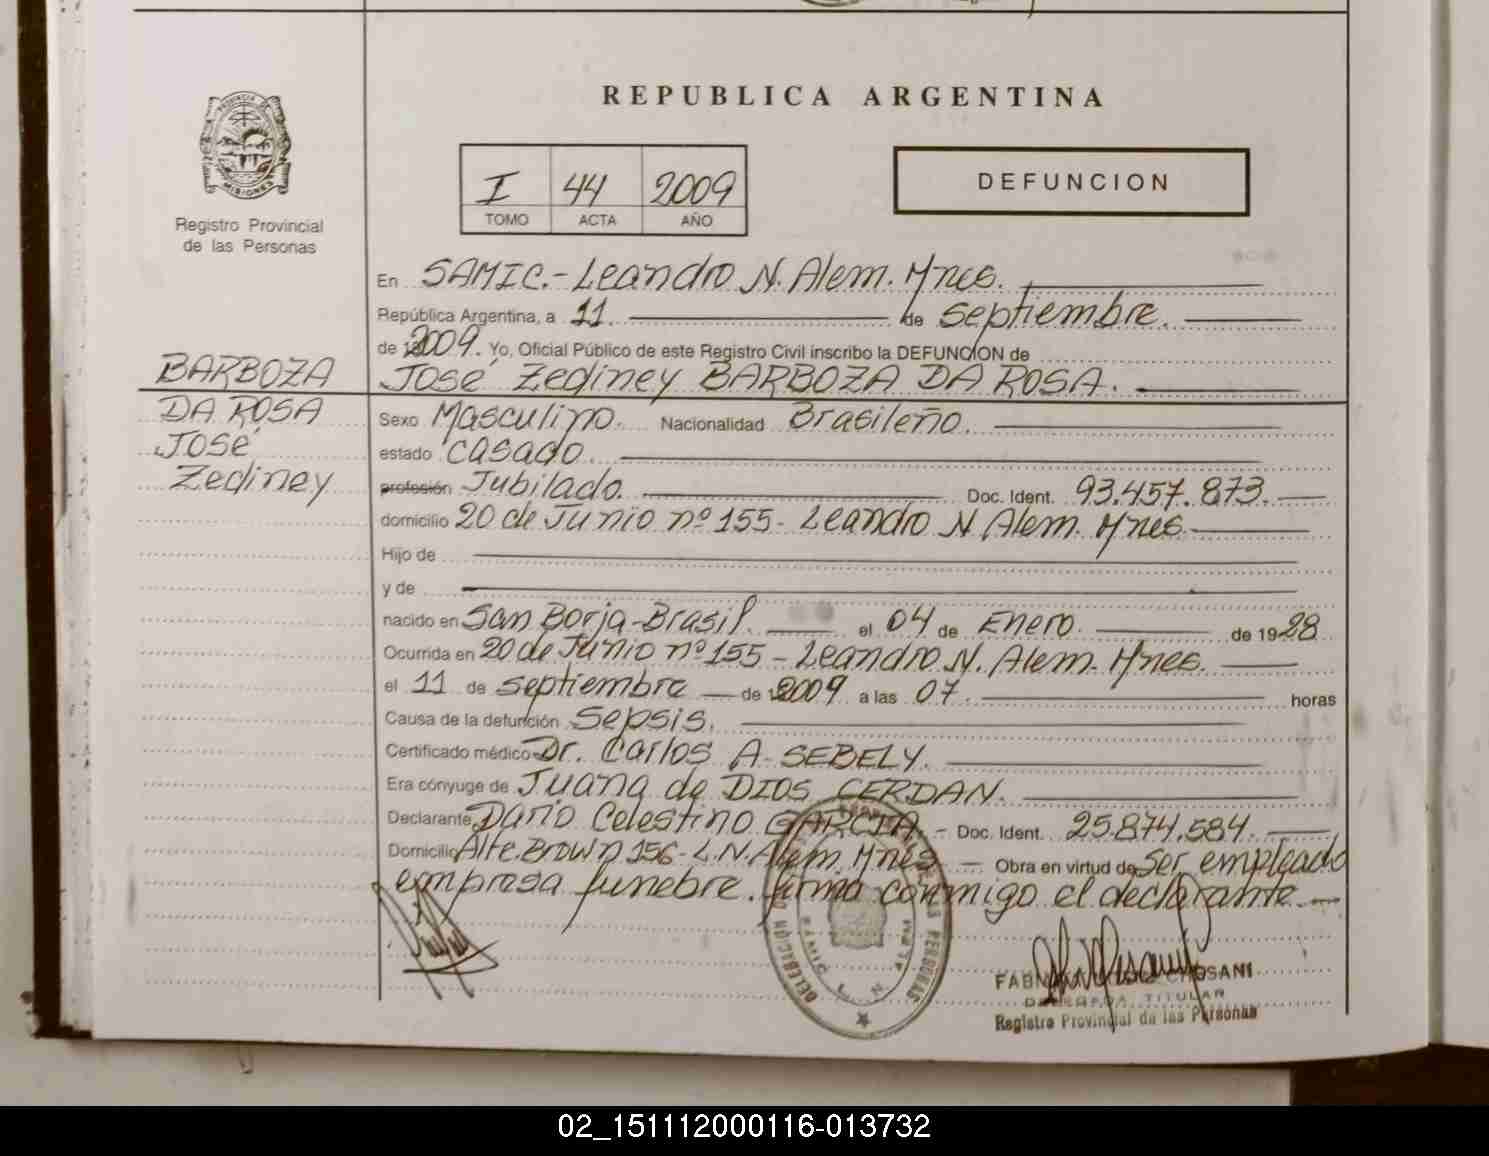 REPUBLICA ARGENTINA
PROVINCIA DE
MISIONES
Registro Provincial
de las Personas
I 44 2009
TOMO ACTA AÑO
DEFUNCION
En SAMIC.- Leandro N. Alem. Mnes.
República Argentina, a 11. de septiembre.
de 2009. Yo, Oficial Público de este Registro Civil inscribo la DEFUNCION de
José Zediney BARBOZA DA ROSA.
BARBOZA
DA ROSA
José
Zediney
Sexo Masculino. Nacionalidad Brasileño.
estado casado.
profesión Jubilado. Doc. Ident. 93.457.873.
domicilio 20 de Junio nº 155 - Leandro N Alem. Mnes.
Hijo de
y de
nacido en San Borja - Brasil. el 04 de Enero. de 1928
Ocurrida en 20 de Junio nº 155 - Leandro N. Alem. Mnes.
el 11 de septiembre de 2009 a las 07. horas
Causa de la defunción Sepsis.
Certificado médico Dr. Carlos A. SEBELY.
Era cónyuge de Juana de DIOS CERDAN.
Declarante Darío Celestino GARCIA. - Doc. Ident. 25.874.584.
Domicilio Alte. Brown 156 - L.N. Alem. Mnes - Obra en virtud de Ser empleado
empresa funebre. firma conmigo el declarante.
DELEGACION PERSONAS
SAMIC L. N.
TITULAR
Registro Provincial de las Personas
02_151112000116-013732